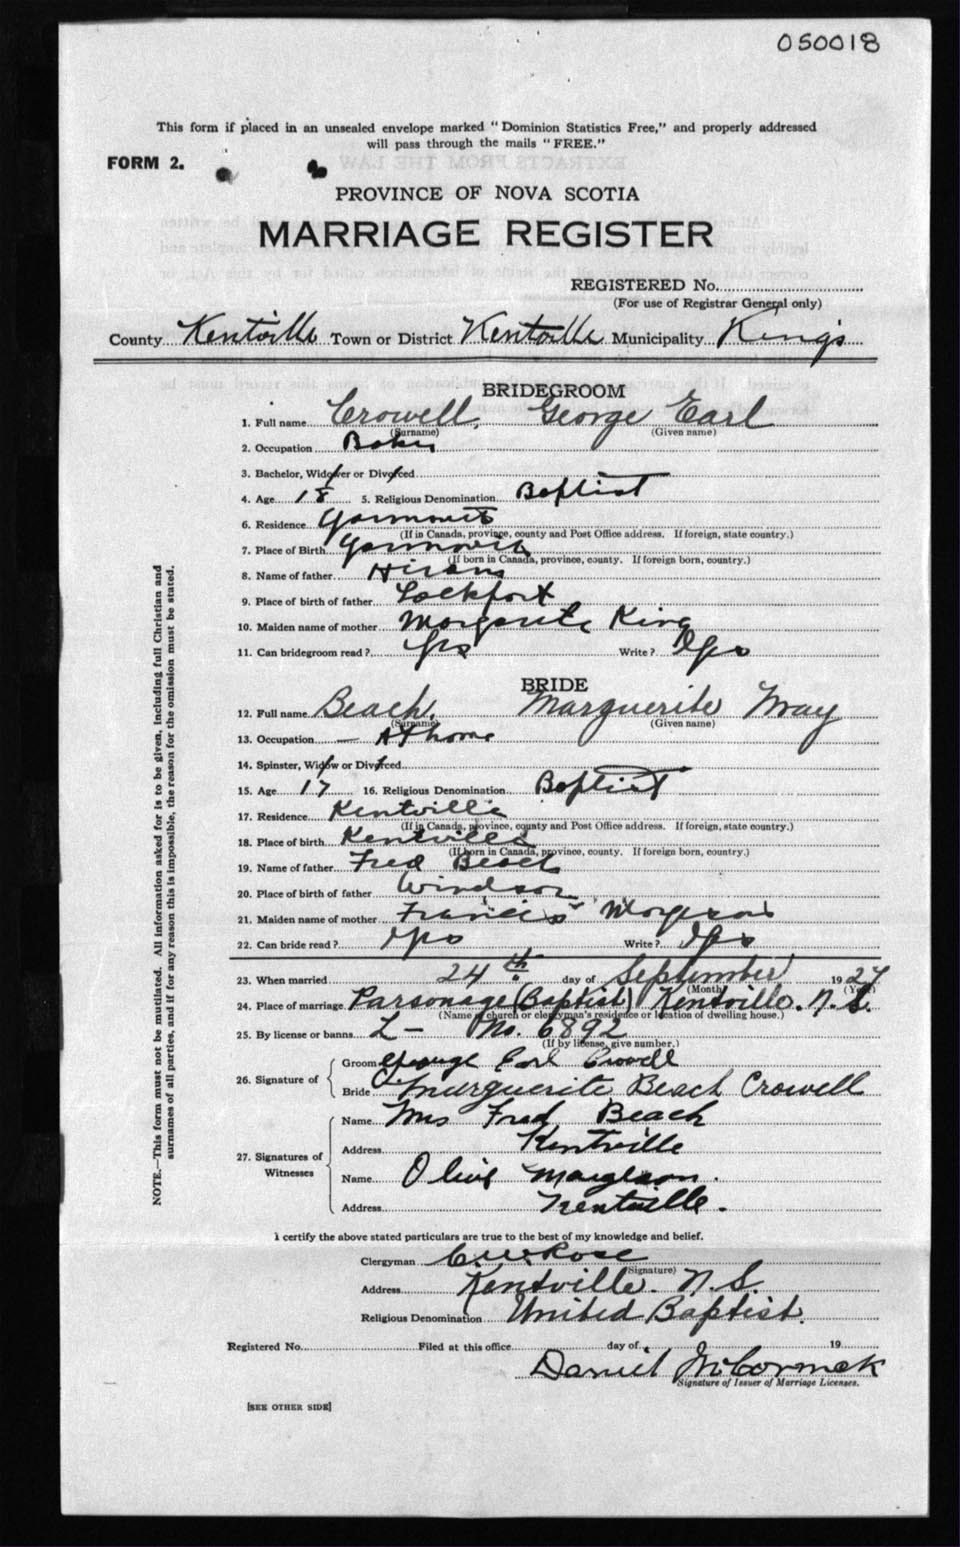 050018
This form if placed in an unsealed envelope marked "Dominion Statistics Free," and properly addressed
will pass through the mails "FREE."
FORM 2.
PROVINCE OF NOVA SCOTIA
MARRIAGE REGISTER
REGISTERED No.
(For use of Registrar General only)
County Kentville Town or District Kentville Municipality Kings
BRIDEGROOM
1. Full name Crowell, George Earl
(Surname) (Given name)
2. Occupation Baker
3. Bachelor, Widower or Divorced
4. Age 18 5. Religious Denomination Baptist
6. Residence Yarmouth
(If in Canada, province, county and Post Office address. If foreign, state country.)
7. Place of Birth Yarmouth
(If born in Canada, province, county. If foreign born, country.)
8. Name of father Hiram
9. Place of birth of father Lockport
10. Maiden name of mother Margarite King
11. Can bridegroom read? Yes Write? Yes
BRIDE
12. Full name Beach, Marguerite May
(Surname) (Given name)
13. Occupation — At home
14. Spinster, Widow or Divorced
15. Age 17 16. Religious Denomination Baptist
17. Residence Kentville
(If in Canada, province, county and Post Office address. If foreign, state country.)
18. Place of birth Kentville
(If born in Canada, province, county. If foreign born, country.)
19. Name of father Fred Beach
20. Place of birth of father Windsor
21. Maiden name of mother Francis Morgeson
22. Can bride read? Yes Write? Yes
23. When married 24th day of September 1927
(Month) (Year)
24. Place of marriage Parsonage (Baptist) Kentville. N.S.
(Name of church or clergyman's residence or location of dwelling house.)
25. By license or banns L — No. 6892
(If by license, give number.)
26. Signature of
Groom George Earl Crowell
Bride Marguerite Beach Crowell
27. Signatures of Witnesses
Name Mrs Fred Beach
Address Kentville
Name Olive Margeson.
Address Kentville.
I certify the above stated particulars are true to the best of my knowledge and belief.
Clergyman C. W. Rose
(Signature)
Address Kentville. N.S.
Religious Denomination United Baptist.
Registered No. Filed at this office day of 19
Daniel McCormack
Signature of Issuer of Marriage Licenses.
[SEE OTHER SIDE]
NOTE.—This form must not be mutilated. All information asked for is to be given, including full Christian and
surnames of all parties, and if for any reason this is impossible, the reason for the omission must be stated.